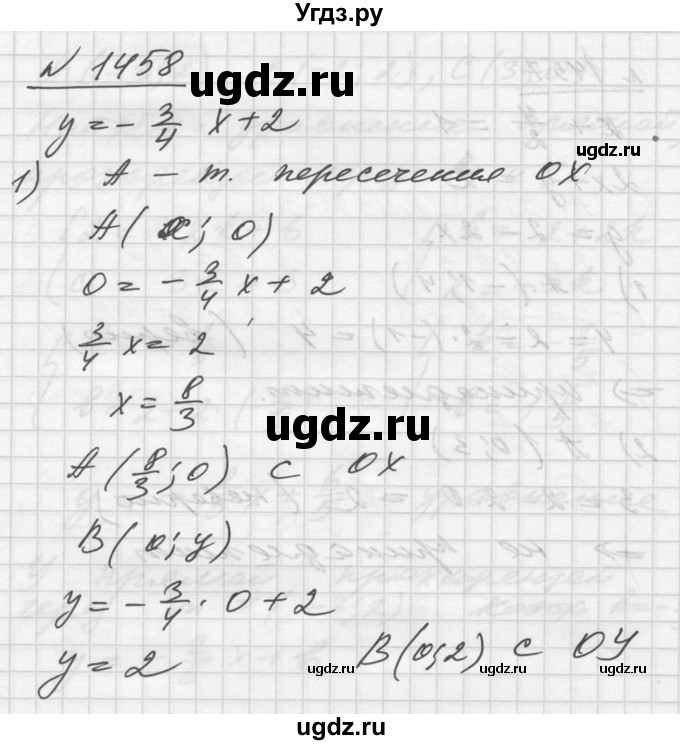 Угдз.ру
№ 1458
ugdz.ru
y = - 3/4 x + 2
ugdz.ru
1) A – т. пересечения OX
A(x; 0)
0 = - 3/4 x + 2
3/4 x = 2
x = 8/3
ugdz.ru
A(8/3; 0) с OX
B(0; y)
y = - 3/4 · 0 + 2
y = 2 B(0; 2) с OY
ugdz.ru ugdz.ru
ugdz.ru